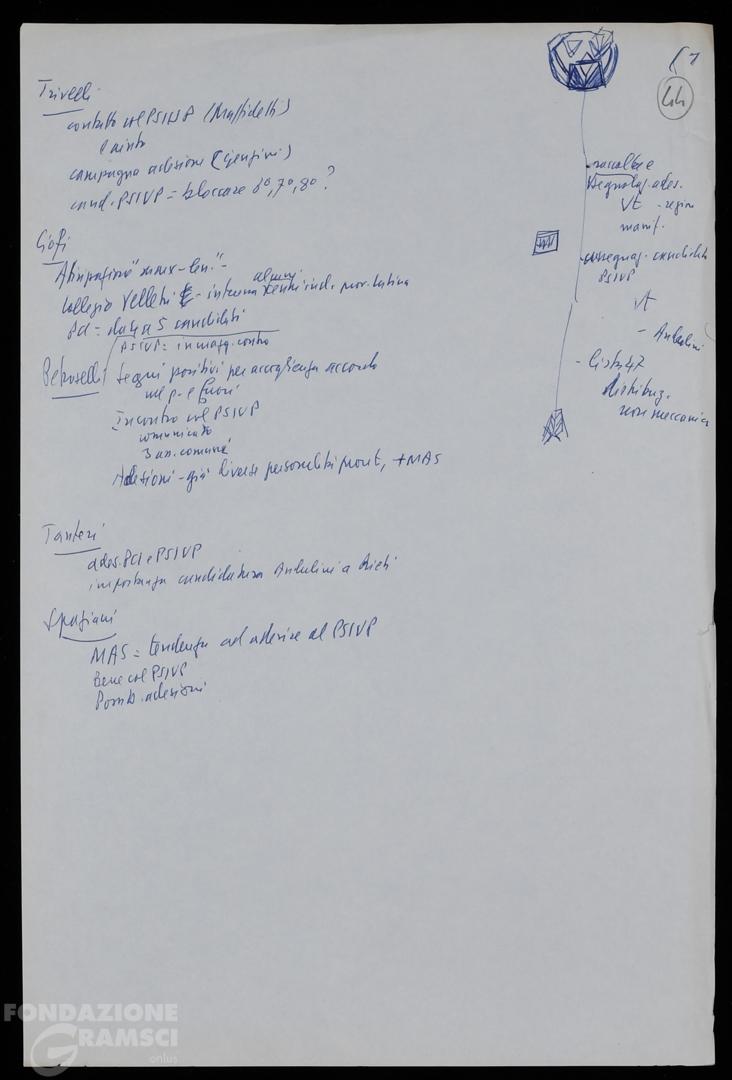 Trivelli
contatto col PSIUP (Maffioletti)
e
campagna adesione
cand. PSIUP = bloccare 6°, 7°, 8° ?
Ciofi
"marx-len." -
collegio Velletri - alcuni ind. prov. Latina
Pci = da 4 a 5 candidati
PSIUP = in magg. contro
Petroselli segni positivi per accoglienza accordo
nel p. e fuori
Incontro col PSIUP
comunicato
3 an. comuni
Adesioni - già diverse personalità pront, + MAS
ades. PCI e PSIUP
importanza candidatura Anderlini a Rieti
Spaziani
MAS = tendenza ad aderire al PSIUP
Bene col PSIUP
Possib. adesioni
44
- raccolta e
segnalaz. ades.
Vt - region
manif.
- candidati
PSIUP
Vt
- Anderlini
- lista 47
distribuz.
non meccanica
FONDAZIONE
GRAMSCI
onlus